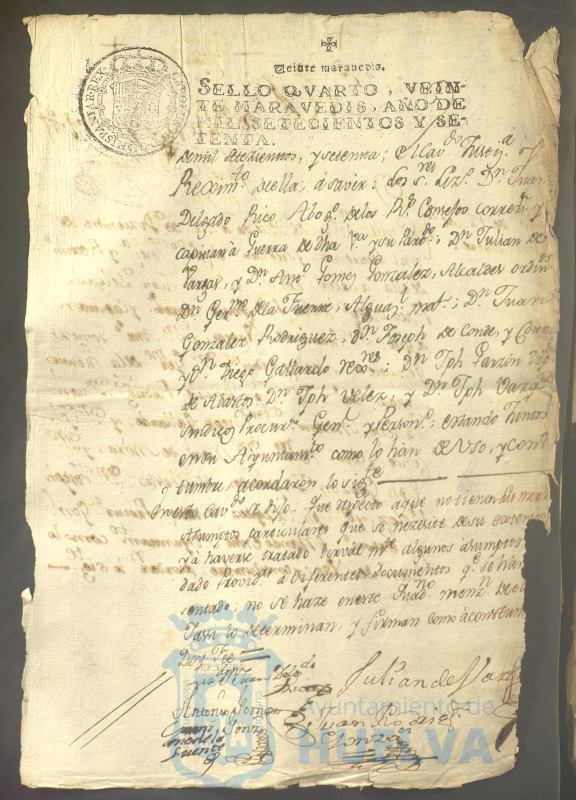 Veinte maravedis.
SELLO QVARTO, VEIN-
TE MARAVEDIS, AÑO DE
MIL SETECIENTOS Y SE-
TENTA.
HISPANIAR. REX
de mil setezientos, y setenta; El Cavdo Justya
Reximto de ella, á saver: los Sres Lizdo Dn Juan
Delgado Rico Abogo de los Rs Consejos correxr y
capitan á Guerra de dha Va y su Pardo; Dn Julian de
Vargas, y Dn Anto Gomez Gonzalez, Alcaldes ordins
Dn Germo de la Fuente, Alguazl mar; Dn Juan
Gonzalez Rodriguez, Dn Joseph de Conde, y
y Dn Diego Gallardo rexres; Dn Jph Garzon
de Abastos, Dn Jph Velez, y Dn Jph Varg
sindico Procurr Genl y Person; estando Juntos
en su Ayuntamto como lo han de Uso, y cos
tumbre, acordaron lo sigte
En este Cavdo se dijo: Que respecto aque no tienen sus mer
Asumptos particulares que se nezesite de su
y a haverse tratado algunos asumptos
dado Provids a Diferentes Documentos qe se han
sentado; no se haze en este Quadno menzn de
Y assi lo determinan, y firman como acostum
Doy fee
Juan Delgdo
Rico
Julian de Varg
Antonio Gomez
Gonz
Juan Rodrigz
Gonzalez
de la
Fuente
Ayuntamiento de
HUELVA